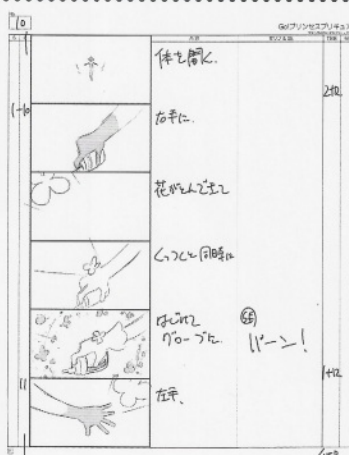 10
Go!プリンセスプリキュア
体を開く.
2+12
1-10
右手に.
花がとんで来て
くっつくと同時に
はじけて
グローブに.
SE
バーン!
1+12
11
左手、